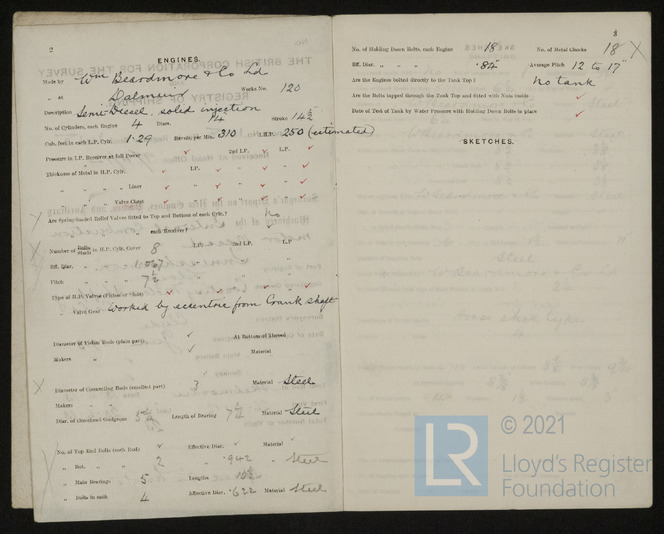 2
ENGINES.
Made by Wm Beardmore & Co Ld
" at Dalmuir Works No. 120
Description Semi-Diesel, solid injection
No. of Cylinders, each Engine 4 Diars. 14 Stroke 14½
Cub. feet in each L.P. Cylr. 1.29 Revols. per Min. 310 I.H.P. 250 (estimated)
Pressure in I.P. Receiver at full Power 2nd I.P. L.P.
Thickness of Metal in H.P. Cylr. I.P.
" " Liner
" " Valve Chest
Are Spring-loaded Relief Valves fitted to Top and Bottom of each Cylr.? No
each Receiver?
Number of Bolts Studs in H.P. Cylr. Cover 8 I.P. 2nd I.P. L.P.
Eff. Diar.
Pitch
Type of H.P. Valves (Piston or Slide)
Valve Gear Worked by eccentric from Crank shaft
Diameter of Piston Rods (plain part) At Bottom of Thread
Makers Material
Diameter of Connecting Rods (smallest part) 3 Material Steel
Makers
Diar. of Crosshead Gudgeons Length of Bearing Material Steel
No. of Top End Bolts (each Rod) Effective Diar. Material
" Bot. " " 2 " .942 " Steel
" Main Bearings 5 Lengths
" Bolts in each 4 Effective Diar. .622 Material Steel
3
No. of Holding Down Bolts, each Engine 18 No. of Metal Chocks 18
Eff. Diar. " " .84" Average Pitch 12 to 17"
Are the Engines bolted directly to the Tank Top? No tank
Are the Bolts tapped through the Tank Top and fitted with Nuts inside
Date of Test of Tank by Water Pressure with Holding Down Bolts in place
SKETCHES.
LR
© 2021
Lloyd's Register
Foundation